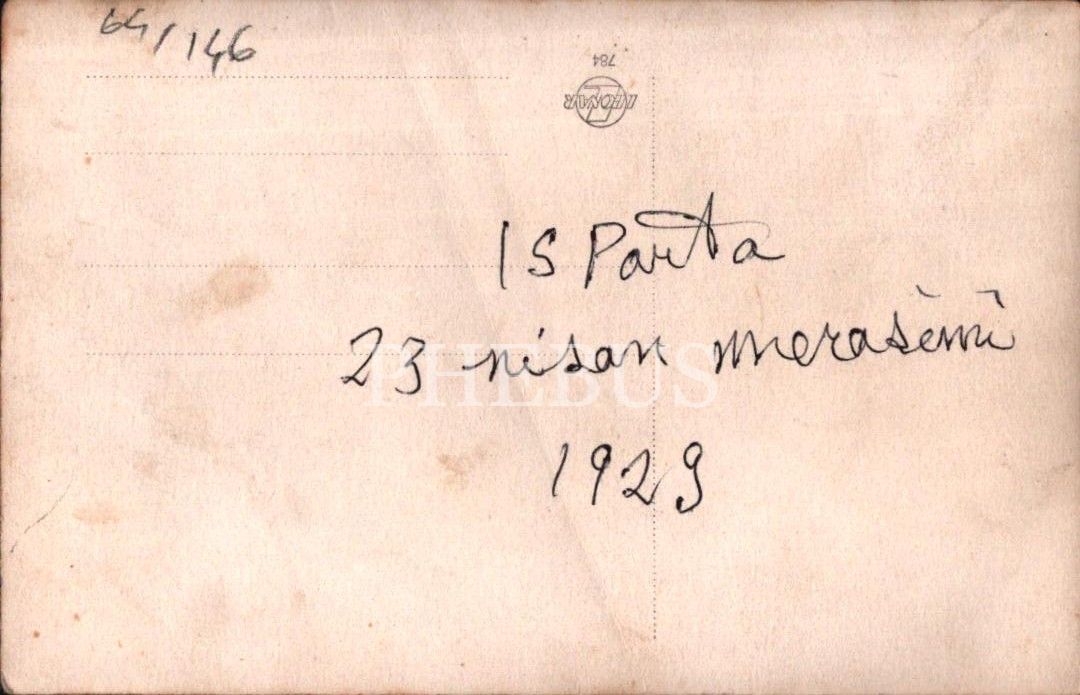 64/146
784
LEONAR
ISParta
23 nisan merasimi
1929
PHEBUS